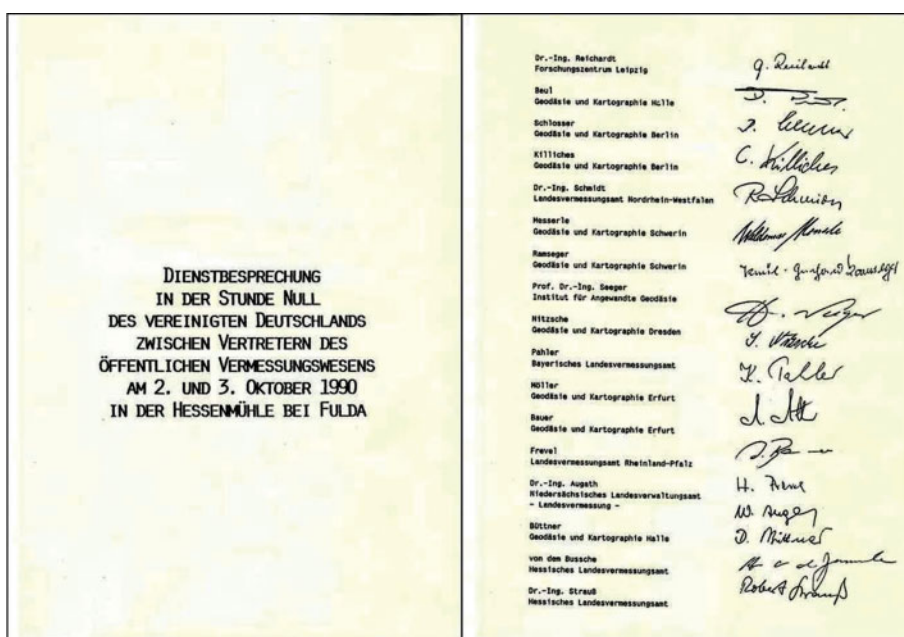 DIENSTBESPRECHUNG
IN DER STUNDE NULL
DES VEREINIGTEN DEUTSCHLANDS
ZWISCHEN VERTRETERN DES
ÖFFENTLICHEN VERMESSUNGSWESENS
AM 2. UND 3. OKTOBER 1990
IN DER HESSENMÜHLE BEI FULDA
Dr.-Ing. Reichardt
Forschungszentrum Leipzig
Beul
Geodäsie und Kartographie Halle
Schlosser
Geodäsie und Kartographie Berlin
Killiches
Geodäsie und Kartographie Berlin
C. Killiches
Dr.-Ing. Schmidt
Landesvermessungsamt Nordrhein-Westfalen
Messerle
Geodäsie und Kartographie Schwerin
Ramseger
Geodäsie und Kartographie Schwerin
Prof. Dr.-Ing. Seeger
Institut für Angewandte Geodäsie
Nitzsche
Geodäsie und Kartographie Dresden
Pahler
Bayerisches Landesvermessungsamt
Möller
Geodäsie und Kartographie Erfurt
Bauer
Geodäsie und Kartographie Erfurt
Frevel
Landesvermessungsamt Rheinland-Pfalz
Dr.-Ing. Augath
Niedersächsisches Landesverwaltungsamt
- Landesvermessung -
Büttner
Geodäsie und Kartographie Halle
von dem Bussche
Hessisches Landesvermessungsamt
Dr.-Ing. Strauß
Hessisches Landesvermessungsamt
Robert Strauß